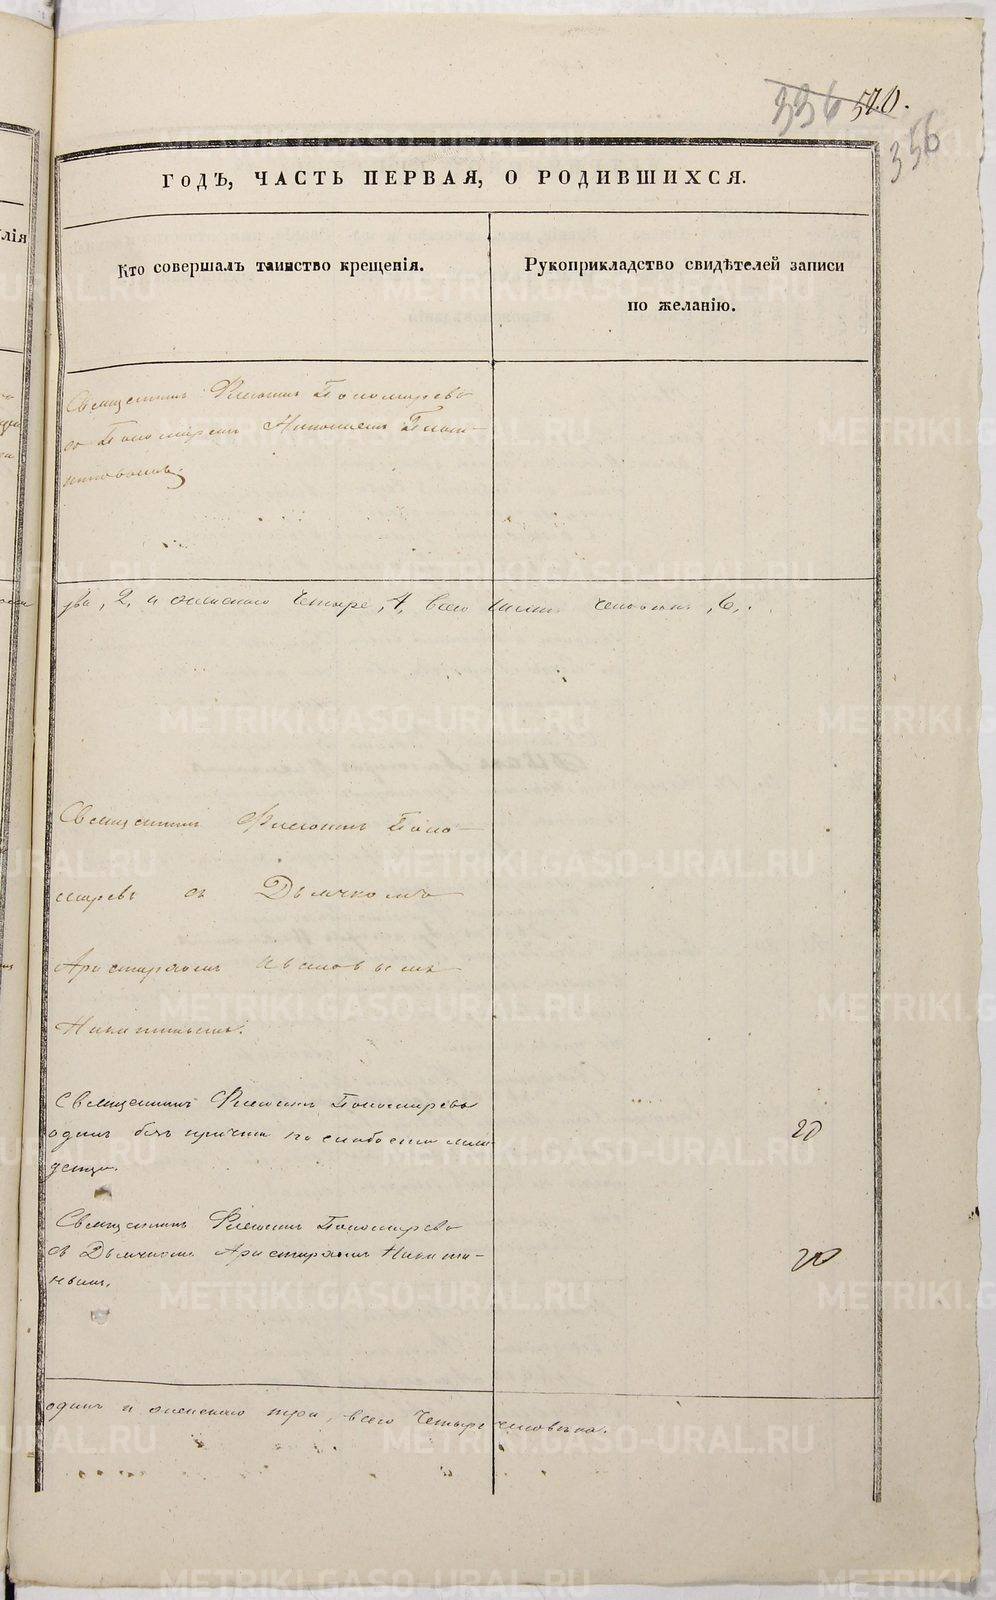 336 520.
356
ГОДЪ, ЧАСТЬ ПЕРВАЯ, О РОДИВШИХСЯ.
Кто совершалъ таинство крещенія.
Рукоприкладство свидѣтелей записи
по желанію.
лія
Священникъ Филиппъ Пономаревъ
съ Пономаремъ Николаемъ
два, 2, и женскаго четыре, 4, всего шесть человѣкъ, 6,.
Священникъ Филиппъ Поно-
маревъ съ Дьячкомъ
Аристархомъ Ивановымъ
Никитинымъ.
Священникъ Филиппъ Пономаревъ
одинъ безъ причта по слабости мла-
денца.
20
Священникъ Филиппъ Пономаревъ
съ Дьячкомъ Аристархомъ Никити-
нымъ.
20
одинъ и женскаго три, всего четыре человѣка.
METRIKI.GASO-URAL.RU